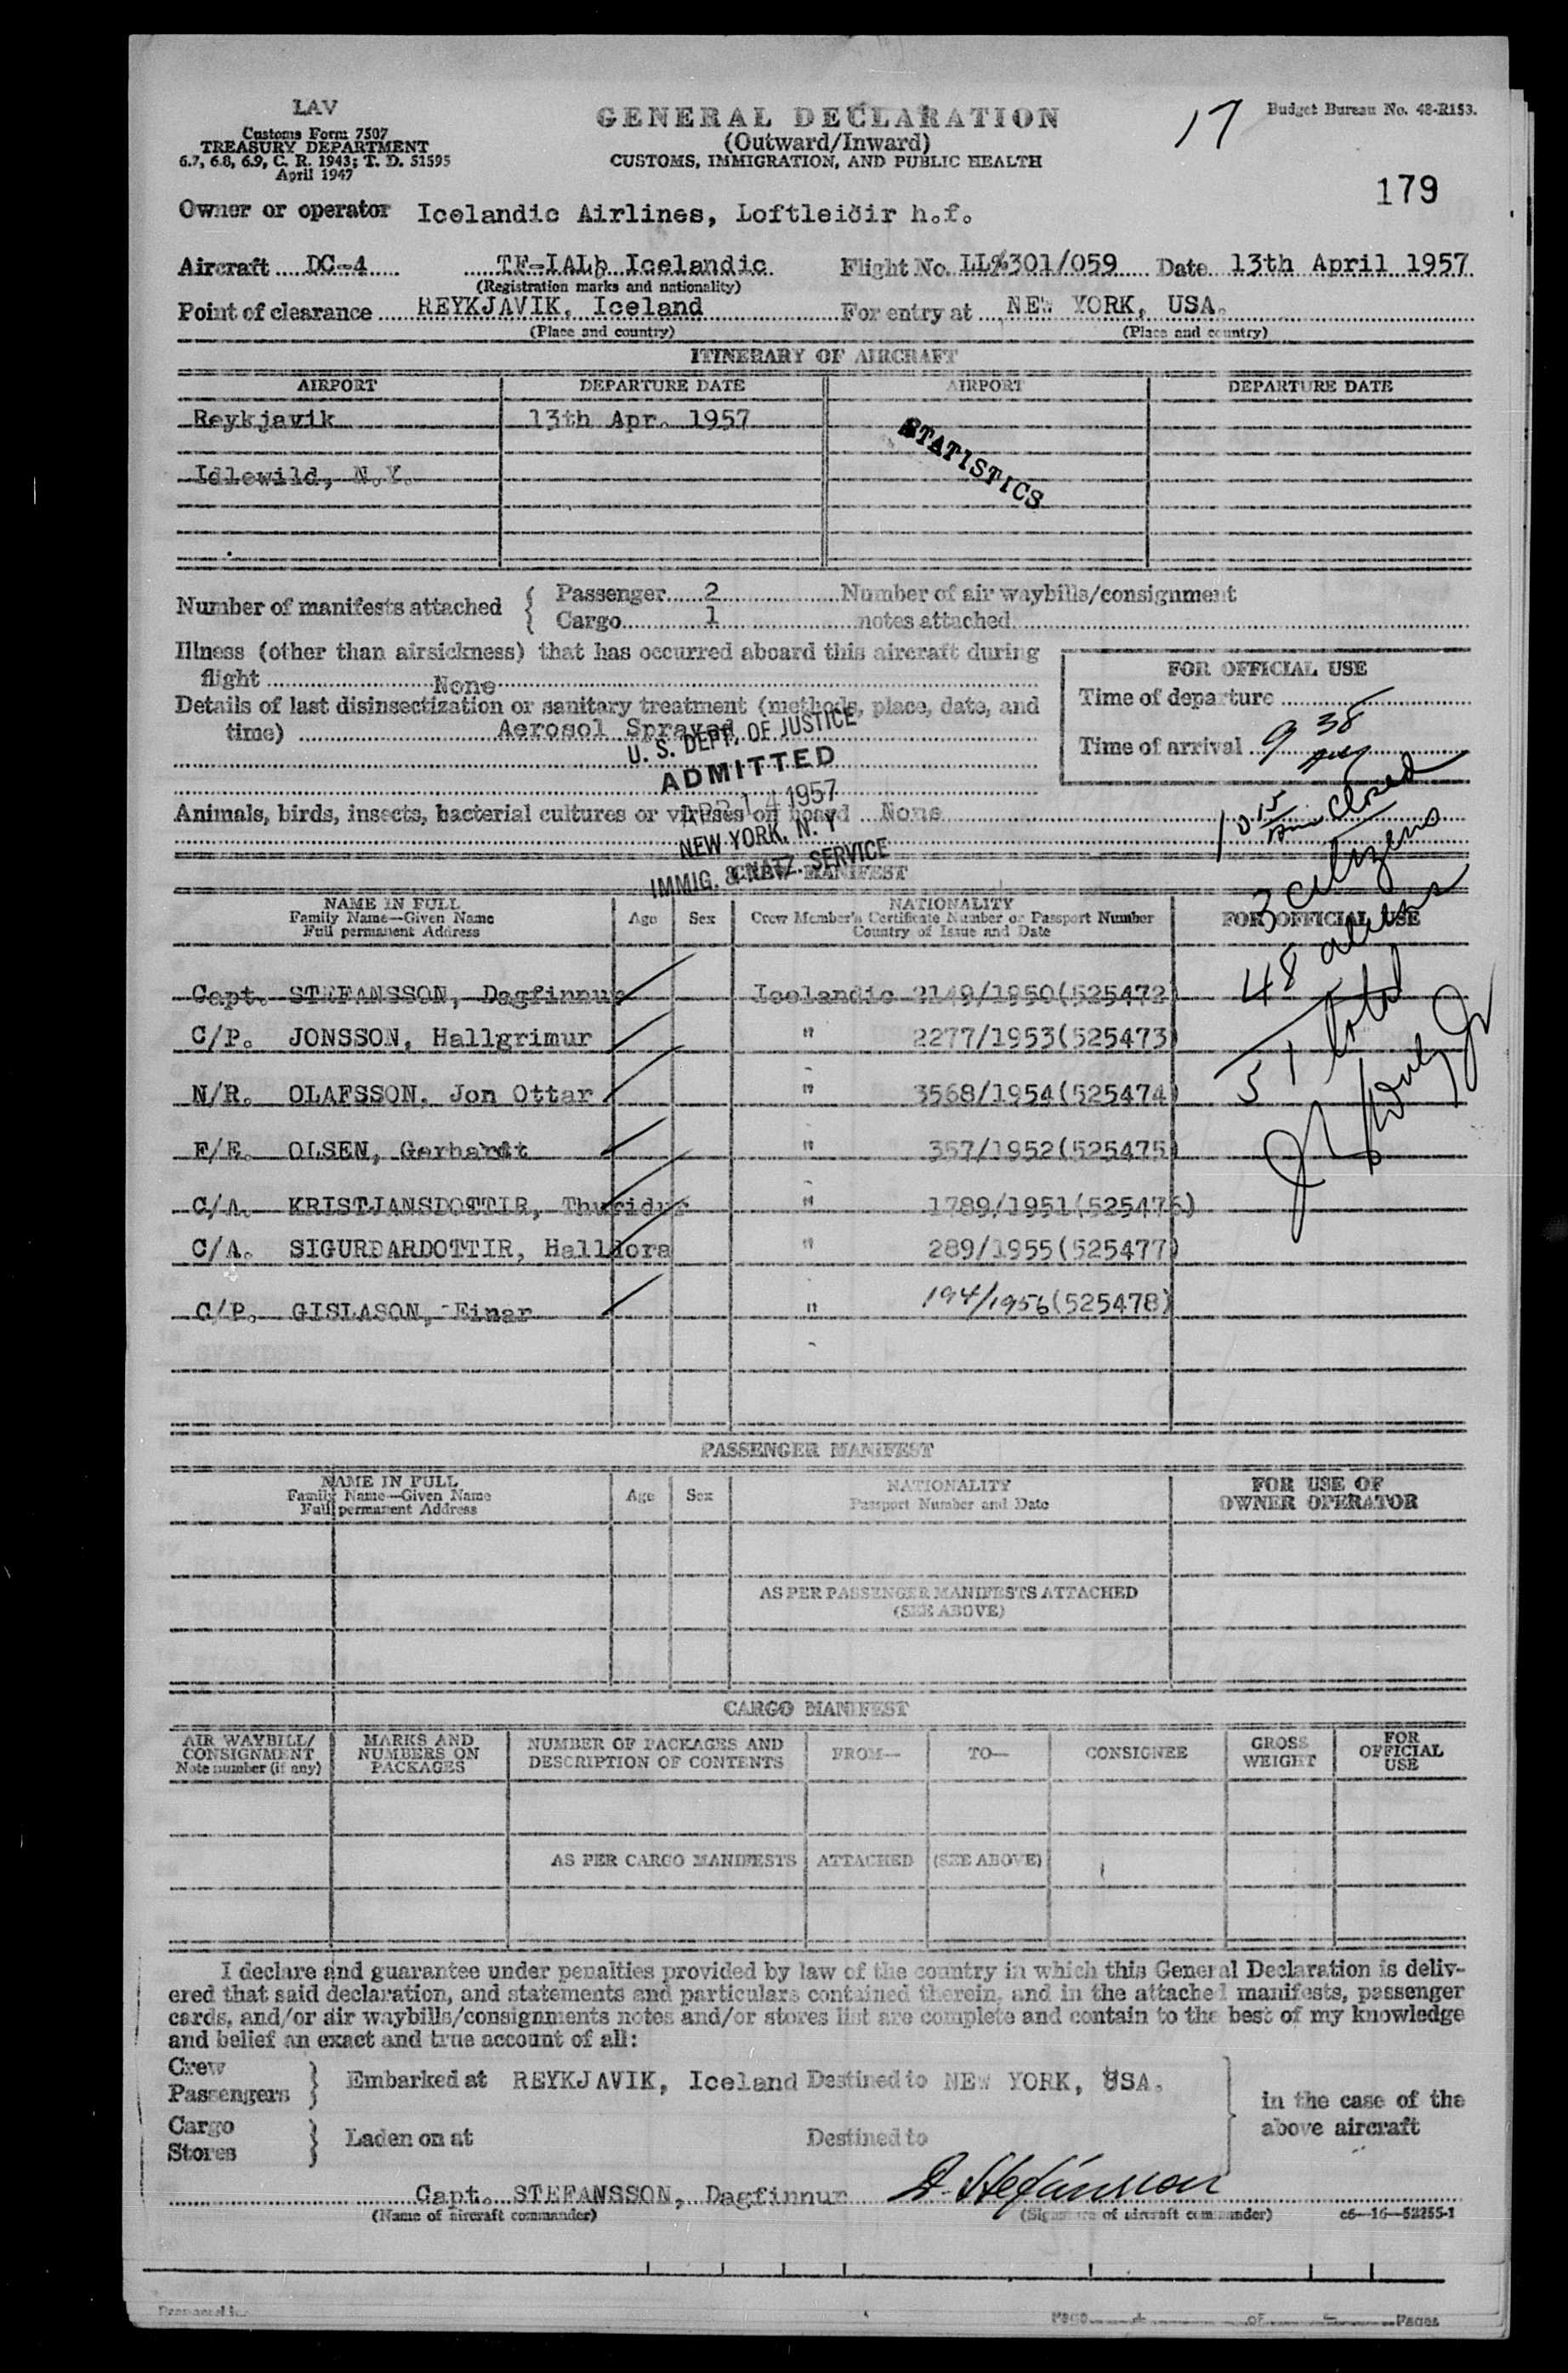 LAV
Customs Form 7507
TREASURY DEPARTMENT
6.7, 6.8, 6.9, C. R. 1943; T. D. 51595
April 1947
GENERAL DECLARATION
(Outward/Inward)
CUSTOMS, IMMIGRATION, AND PUBLIC HEALTH
17
Budget Bureau No. 48-R153.
179
Owner or operator Icelandic Airlines, Loftleiðir h.f.
Aircraft DC-4 Icelandic Flight No. 301/059 Date 13th April 1957
(Registration marks and nationality)
Point of clearance REYKJAVIK, Iceland For entry at NEW YORK, USA.
(Place and country) (Place and country)
ITINERARY OF AIRCRAFT
AIRPORT DEPARTURE DATE AIRPORT DEPARTURE DATE
Reykjavik 13th Apr. 1957
STATISTICS
Idlewild, N.Y.
Number of manifests attached { Passenger 2 Number of air waybills/consignment
Cargo 1 notes attached
Illness (other than airsickness) that has occurred aboard this aircraft during
flight None
Details of last disinsectization or sanitary treatment (methods, place, date, and
time) Aerosol Sprayed
FOR OFFICIAL USE
Time of departure
Time of arrival 9 38
U. S. DEPT. OF JUSTICE
ADMITTED
APR 14 1957
NEW YORK, N. Y
IMMIG. & NATZ. SERVICE
Animals, birds, insects, bacterial cultures or viruses on board None
10 15 closed
3 citizens
48 aliens
51 total
CREW MANIFEST
NAME IN FULL
Family Name—Given Name
Full permanent Address
Age Sex
NATIONALITY
Crew Member's Certificate Number or Passport Number
Country of Issue and Date
FOR OFFICIAL USE
Capt. STEFANSSON, Dagfinnur Icelandic 2149/1950(525472)
C/P. JONSSON, Hallgrimur " 2277/1953(525473)
N/R. OLAFSSON, Jon Ottar " 3568/1954(525474)
F/E. OLSEN, Gerhardt " 357/1952(525475)
C/A. KRISTJANSDOTTIR, Thuridur " 1789/1951(525476)
C/A. SIGURDARDOTTIR, Halldora " 289/1955(525477)
C/P. GISLASON, Einar " 194/1956(525478)
PASSENGER MANIFEST
NAME IN FULL
Family Name—Given Name
Full permanent Address
Age Sex
NATIONALITY
Passport Number and Date
FOR USE OF
OWNER OPERATOR
AS PER PASSENGER MANIFESTS ATTACHED
(SEE ABOVE)
CARGO MANIFEST
AIR WAYBILL/
CONSIGNMENT
Note number (if any)
MARKS AND
NUMBERS ON
PACKAGES
NUMBER OF PACKAGES AND
DESCRIPTION OF CONTENTS
FROM— TO— CONSIGNEE
GROSS
WEIGHT
FOR
OFFICIAL
USE
AS PER CARGO MANIFESTS ATTACHED (SEE ABOVE)
I declare and guarantee under penalties provided by law of the country in which this General Declaration is deliv-
ered that said declaration, and statements and particulars contained therein, and in the attached manifests, passenger
cards, and/or air waybills/consignments notes and/or stores list are complete and contain to the best of my knowledge
and belief an exact and true account of all:
Crew
Passengers } Embarked at REYKJAVIK, Iceland Destined to NEW YORK, USA.
in the case of the
above aircraft
Cargo
Stores } Laden on at Destined to
Capt. STEFANSSON, Dagfinnur D. Stefánsson
(Name of aircraft commander) (Signature of aircraft commander) c6—16—52255-1
Page of Pages